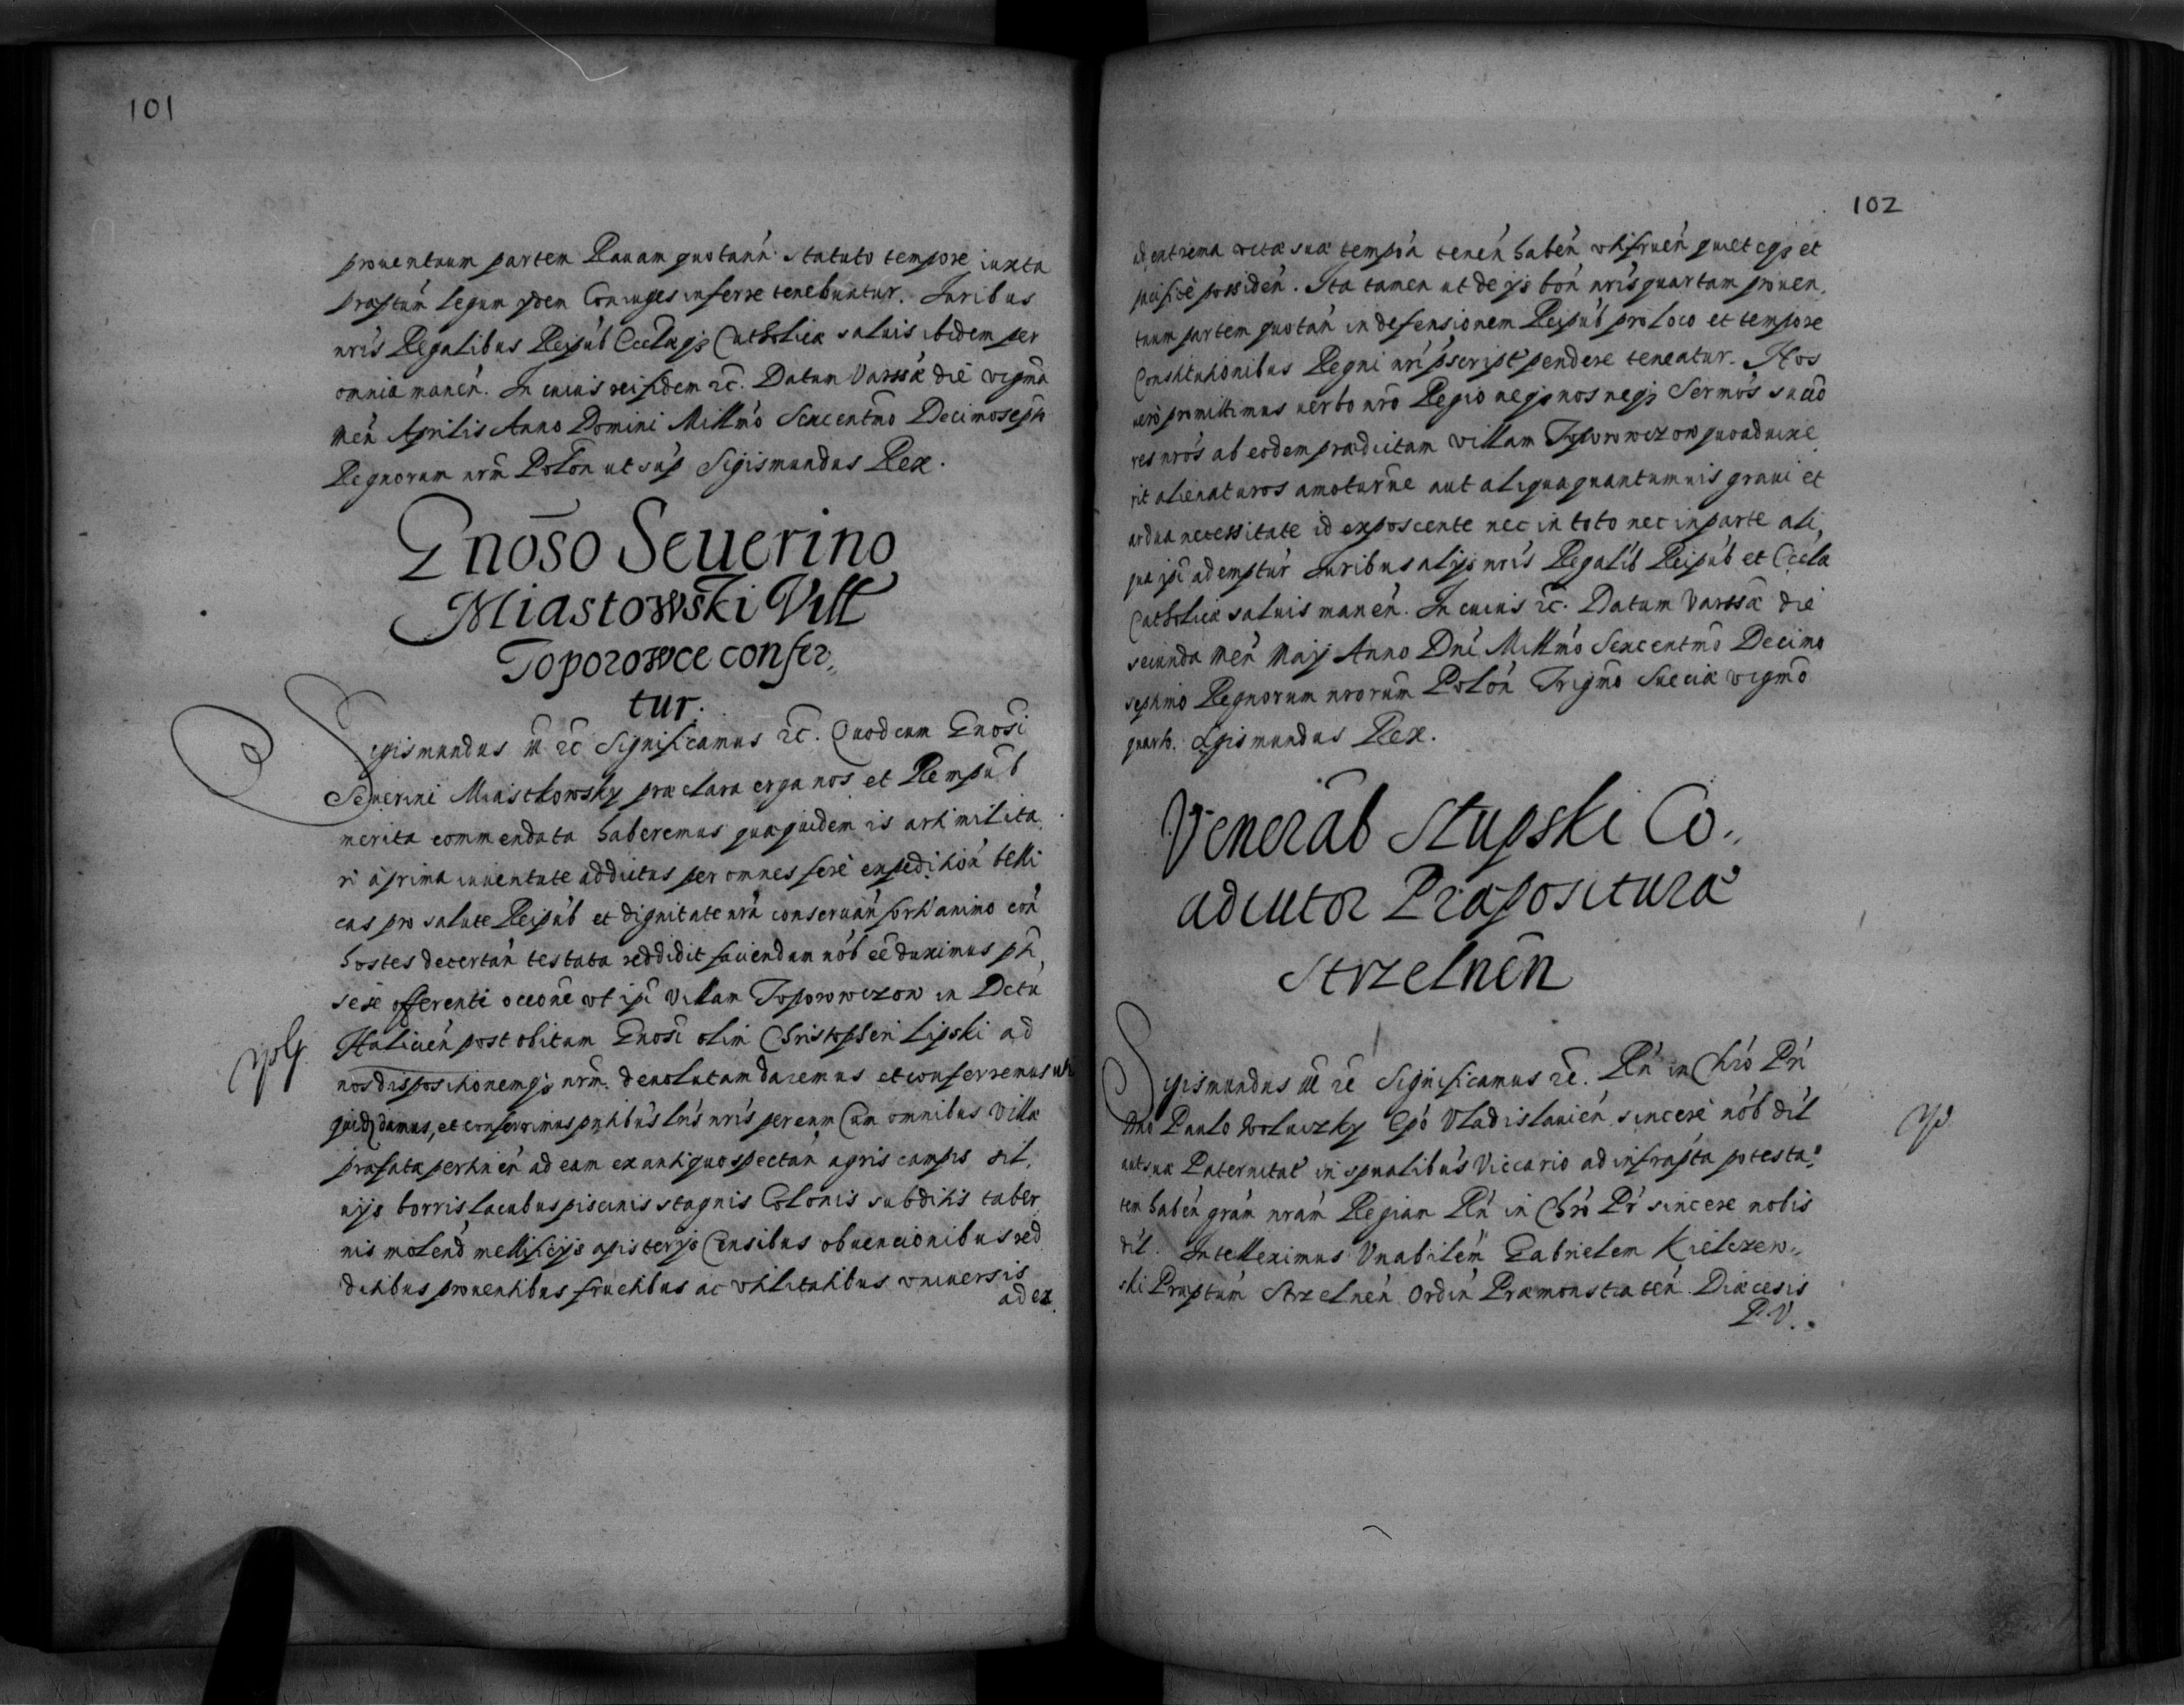 101
prouentuum partem Rauam quotann statuto tempore iuxta
praeptum legum ydem Coniuges inferre tenebuntur. Iuribus
nris Regalibus Reipub Ecclaeqz Catholicae saluis ibidem per
omnia manen. In cuius rei fidem etc. Datum Varssae die vigma
Men Aprilis Anno Domini Millmo Sexcentmo Decimosepto
Regnorum nrm Polon ut sup Sigismundus Rex.
Gnoso Seuerino
Miastowski Vill
Toporowce confer,,
tur.
Sigismundus III etc Significamus etc. Quod cum Gnosi
Seuerini Miastkowsky praeclara erga nos et Rempub
merita commendata haberemus quaquidem is arti milita,
ri a prima iuuentute addictus per omnes fere expedition belli
cas pro salute Reipub et dignitate nra conseruan forti animo con
hostes decertan testata reddidit faciendum nob ee duximus pti,
sese offerenti occone vt ipi Villam Toporowczow in Dctu
Haliciен post obitum Gnosi olim Christopheri Lipski ad
nos dispositionemqz nrm. deuolutam daremus et conferremus uti
quidz damus, et conferimus pntibus lris nris per eum Cum omnibus Villae
praefatae pertinen ad eam ex antiquo spectan agris campis sil,
uijs borris lacubus piscinis stagnis Colonis subditis taber
nis molend mellificijs apisterijs Censibus obuencionibus red
ditibus prouentibus fructibus ac vtilitatibus vniuersis
ad ex
102
ad extrema vitae suae tempora tenen haben vtifruen quiet eqz et
pacifice possiden. Ita tamen ut de ijs bon nris quartam prouen,
tuum partem quotan in defensionem Reipub pro loco et tempore
Constitutionibus Regni nri pscript pendere teneatur. Nos
vero promittimus verbo nro Regio neqz nos neqz Sermos succo
res nros ab eodem praedictam villam Toporowczow quoad vixe
rit alienaturos amoturne aut aliqua quantumuis graui et
ardua necessitate id exposcente nec in toto nec in parte ali,
qua ipi ademptur Iuribus alijs nris Regalib Reipub et Eccla
Catholicae saluis manen. In cuius etc. Datum Varssae die
secunda Men Maij Anno Dni Millmo Sexcentmo Decimo
septimo Regnorum nrorum Polon Trigmo Sueciae vigmo
quarto. Sgismundus Rex.
Venerab Stupski Co,,
adiutor Praepositurae
Strzelnen
Sigismundus III etc Significamus etc. Rn in Chro Pri
Dno Paulo Woluczky Epo Vladislauien sincere nob dil
aut suae Paternitat in spualibus Viccario ad infrapta potesta,
tem haben gram nram Regiam Rn in Chro Pr sincere nobis
dil. Intelleximus Vnabilem Gabrielem Kielczew,,
ski Praeptum Strzelnen Ordin Praemonstraten. Diaecesis
P.V.